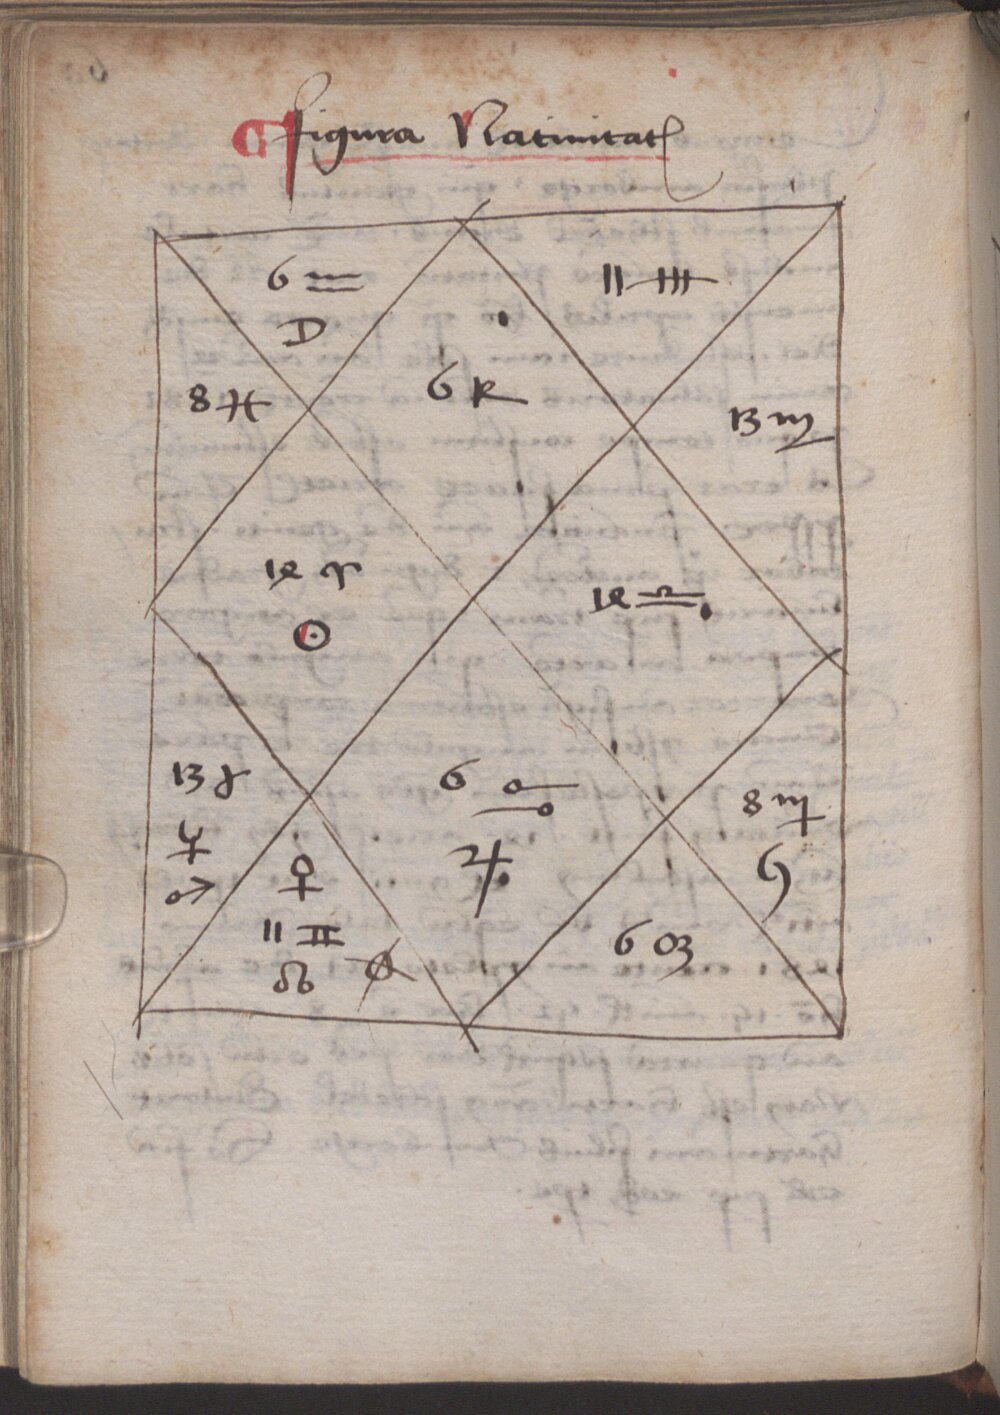 figura Natiuitat
6 ♒
☽
11 ♐
8 ♓
6 ♑
13 ♏
12 ♈
☉
12 ♎
13 ♉
☿
♂
♀
11 ♊
☊
6 ♋
♃
8 ♍
6 ♌